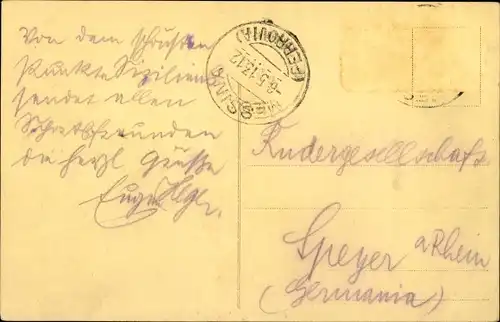 Von dem schönsten
Punkte Siziliens
sendet allen
Freunden
die herzl. Grüsse
Eugen
MESSINA
(FERROVIA)
-8.5.13.12
Rudergesellschaft
Speyer a Rhein
(Germania)